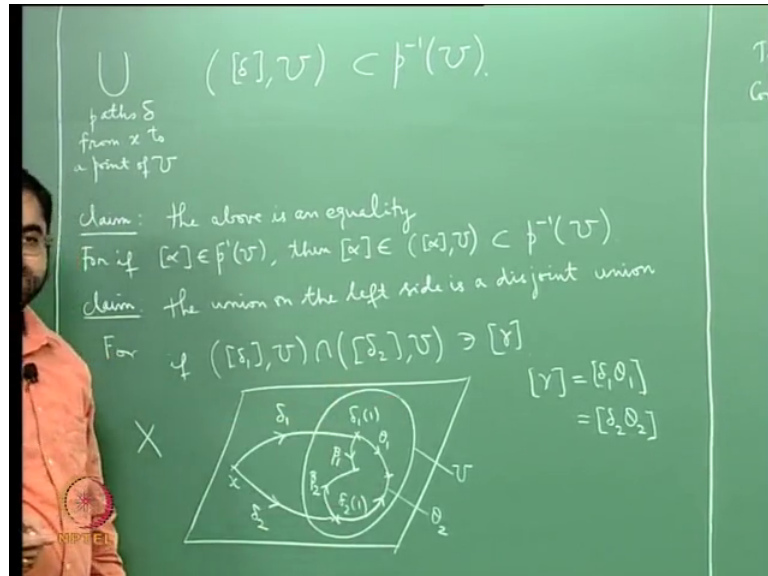 ⋃ ([δ], U) ⊂ p⁻¹(U).
paths δ
from x to
a point of U
claim: the above is an equality
For if [α] ∈ p⁻¹(U), then [α] ∈ ([α], U) ⊂ p⁻¹(U)
claim: the union on the left side is a disjoint union
For if ([δ₁], U) ∩ ([δ₂], U) ∋ [γ]
[γ] = [δ₁θ₁]
= [δ₂θ₂]
X
δ₁
δ₁(1)
θ₁
β₁
x
β₂
U
δ₂
δ₂(1)
θ₂
NPTEL